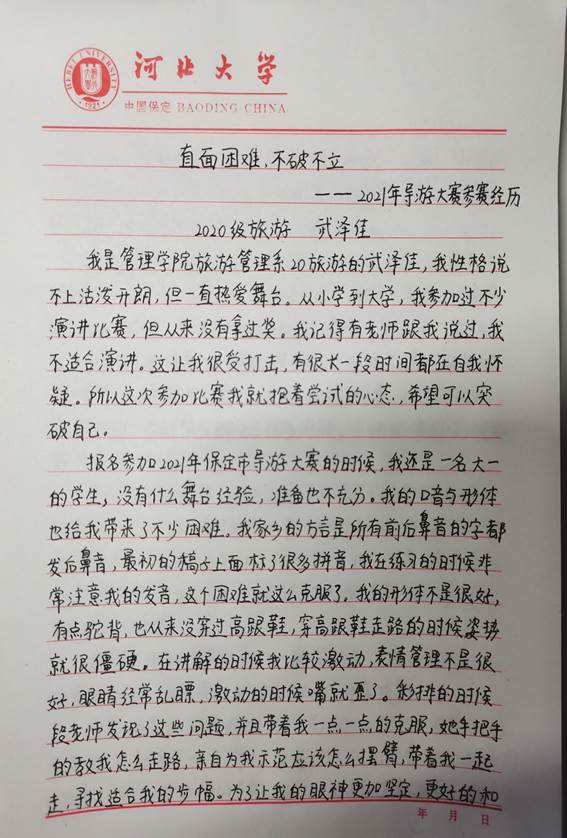 HEBEI UNIVERSITY
1921
河北大学
中国保定 BAODING CHINA
直面困难,不破不立
——2021年导游大赛参赛经历
2020级旅游 武泽佳
我是管理学院旅游管理系20旅游的武泽佳,我性格说
不上活泼开朗,但一直热爱舞台。从小学到大学,我参加过不少
演讲比赛,但从来没有拿过奖。我记得有老师跟我说过,我
不适合演讲。这让我很受打击,有很长一段时间都在自我怀
疑。所以这次参加比赛我就抱着尝试的心态,希望可以突
破自己。
报名参加2021年保定市导游大赛的时候,我还是一名大一
的学生,没有什么舞台经验,准备也不充分。我的口音与形体
也给我带来了不少困难。我家乡的方言是所有前后鼻音的字都
发后鼻音,最初的稿子上面标了很多拼音,我在练习的时候非
常注意我的发音,这个困难就这么克服了。我的形体不是很好,
有点驼背,也从来没穿过高跟鞋,穿高跟鞋走路的时候姿势
就很僵硬。在讲解的时候我比较激动,表情管理不是很
好,眼睛经常乱瞟,激动的时候嘴就歪了。彩排的时候
段老师发现了这些问题,并且带着我一点一点的克服,她手把手
的教我怎么走路,亲自为我示范应该怎么摆臂,带着我一起
走,寻找适合我的步幅。为了让我的眼神更加坚定,更好的和
年 月 日